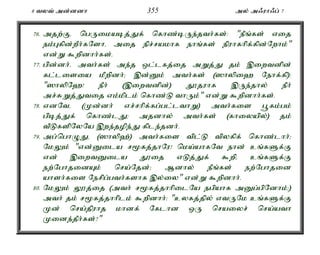 8 வலவ் அன்னனா 355 அல் அஃராஃப் 7
76. அதற்கு, பெருமையடித்துக் கொண்டிருந்தவர்கள்: "நீங்கள் எதை
நம்புகின்றீர்களோ, அதை நிச்சயமாக நாங்கள் நிராகரிக்கின்றோம்"
என்று கூறினார்கள்.
77. பின்னர், அவர்கள் அந்த ஒட்டகத்தை அறுத்து தம் இறைவனின்
கட்டளையை மீறினர்; இன்னும் அவர்கள் (ஸாலிஹை நோக்கி):
"ஸாலிஹே! நீர் (இறைவனின்) தூதராக இருந்தால், நீர்
அச்சுறுத்துவதை எம்மிடம் கொண்டு வாரும்" என்று கூறினார்கள்.
78. எனவே, (முன்னர் எச்சரிக்கப்பட்டவாறு) அவர்களை பூகம்பம்
பிடித்துக் கொண்டது; அதனால் அவர்கள் (காலையில்) தம்
வீடுகளிலேயே இறந்தழிந்து கிடந்தனர்.
79. அப்பொழுது, (ஸாலிஹ்) அவர்களை விட்டு விலகிக் கொண்டார்;
மேலும் "என்னுடைய சமூகத்தாரே! மெய்யாகவே நான் உங்களுக்கு
என் இறைவனுடைய தூதை எடுத்துக் கூறி; உங்களுக்கு
நற்போதனையும் செய்தேன்; ஆனால் நீங்கள் நற்போதனை
யாளர்களை நேசிப்பவர்களாக இல்லை" என்று கூறினார்.
80. மேலும் லூத்தை (அவர் சமூகத்தாரிடையே நபியாக அனுப்பினோம்;)
அவர் தம் சமூகத்தாரிடம் கூறினார்: "உலகத்தில் எவருமே உங்களுக்கு
முன் செய்திராத மானக் கேடான ஒரு செயலைச் செய்யவா
முனைந்தீர்கள்?"